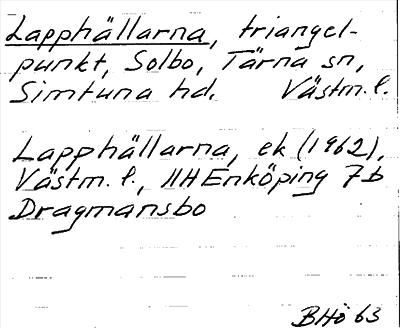 Lapphällarna, triangel-
punkt, Solbo, Tärna sn,
Simtuna hd. Västm. l.
Lapphällarna, ek (1962),
Västm. l., 11H Enköping 7b
Dragmansbo
BHö 63